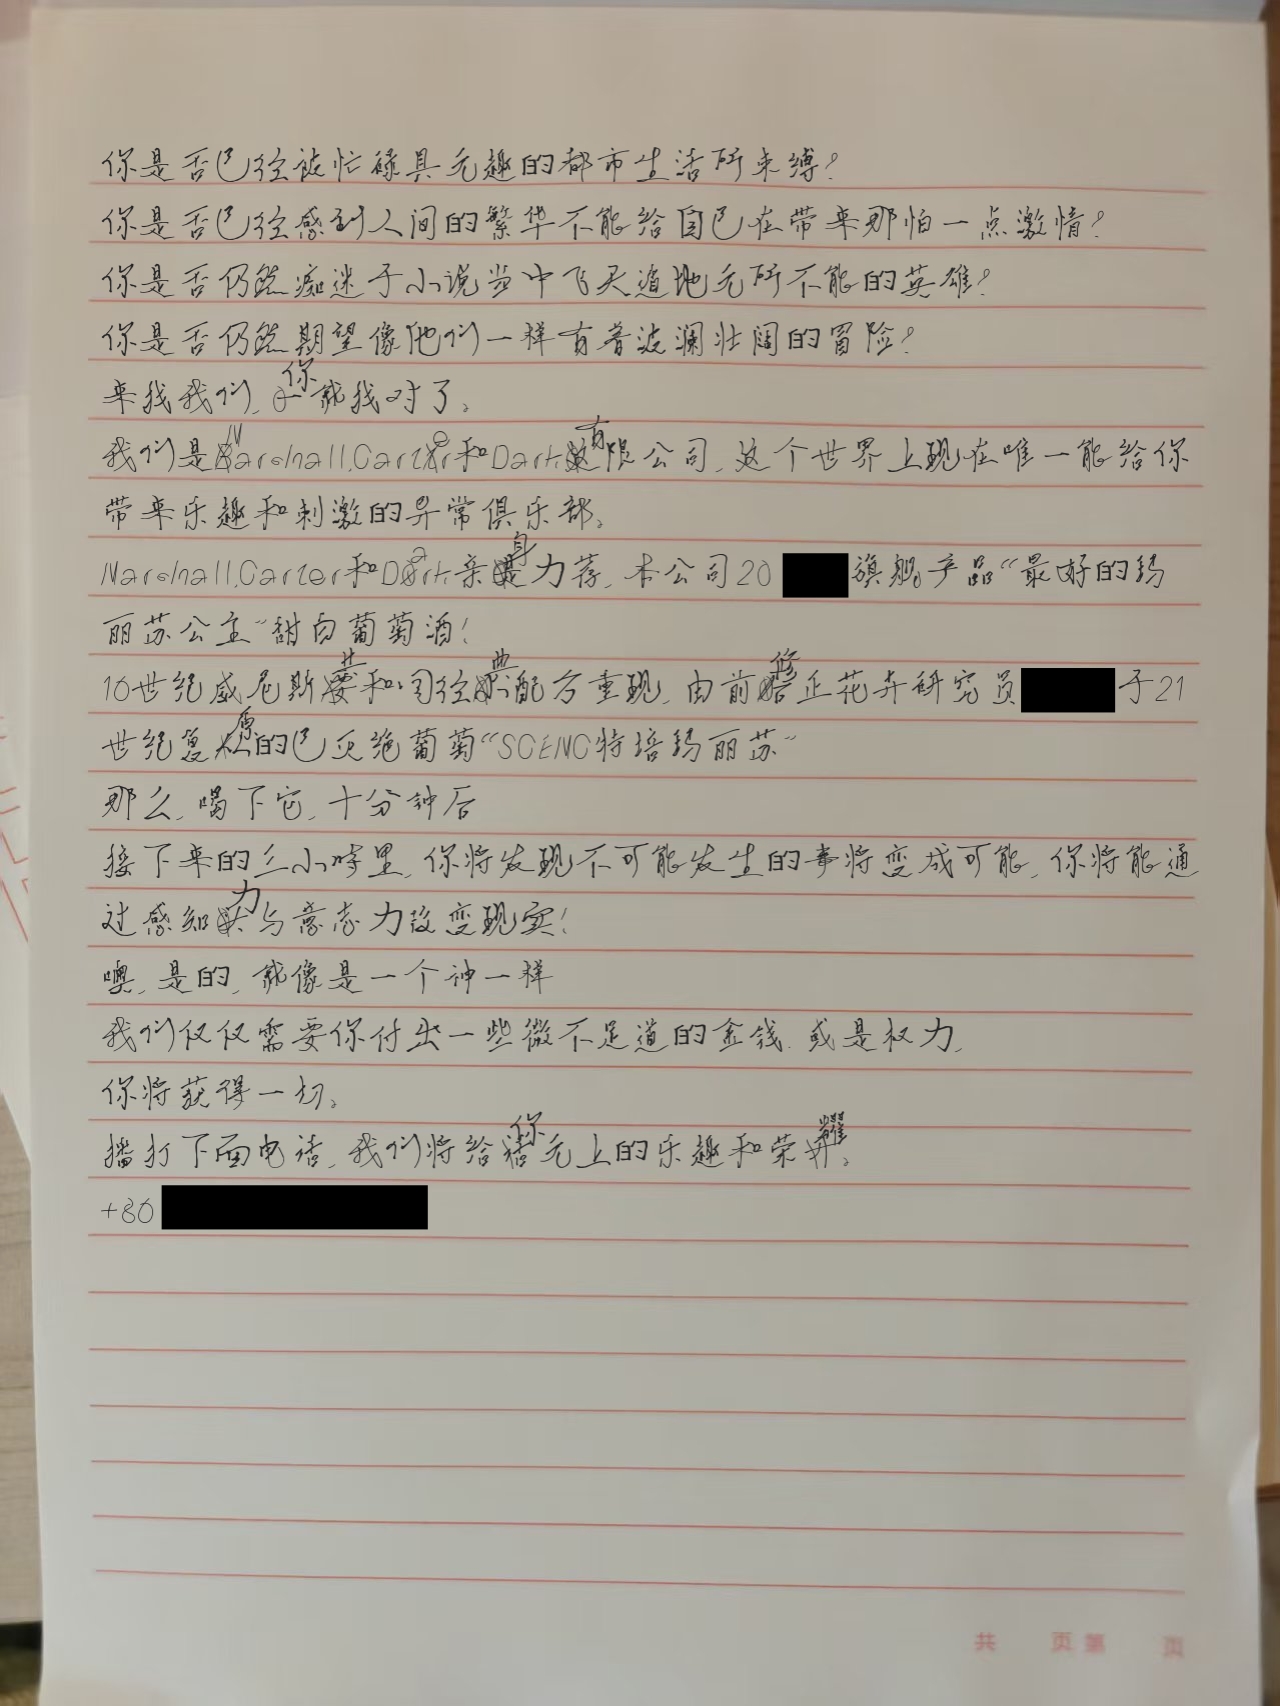 你是否已经被忙碌且无趣的都市生活所束缚?
你是否已经感到人间的繁华不能给自己在带来那怕一点激情?
你是否仍然痴迷于小说当中飞天遁地无所不能的英雄?
你是否仍然期望像他们一样有着波澜壮阔的冒险?
来找我们,你就找对了。
我们是Marshall,Carter和Dark有限公司,这个世界上现在唯一能给你
带来乐趣和刺激的异常俱乐部。
Marshall,Carter和Dark亲身力荐,本公司20 旗舰产品“最好的玛
丽苏公主”甜白葡萄酒!
16世纪威尼斯共和国经典配方重现,由前修正花卉研究员 于21
世纪复原的已灭绝葡萄“SCENC特培玛丽苏”
那么,喝下它,十分钟后
接下来的三小时里,你将发现不可能发生的事将变成可能,你将能通
过感知力与意志力改变现实!
噢,是的,就像是一个神一样
我们仅仅需要你付出一些微不足道的金钱,或是权力,
你将获得一切。
播打下面电话,我们将给你无上的乐趣和荣耀。
+86
共 页 第 页